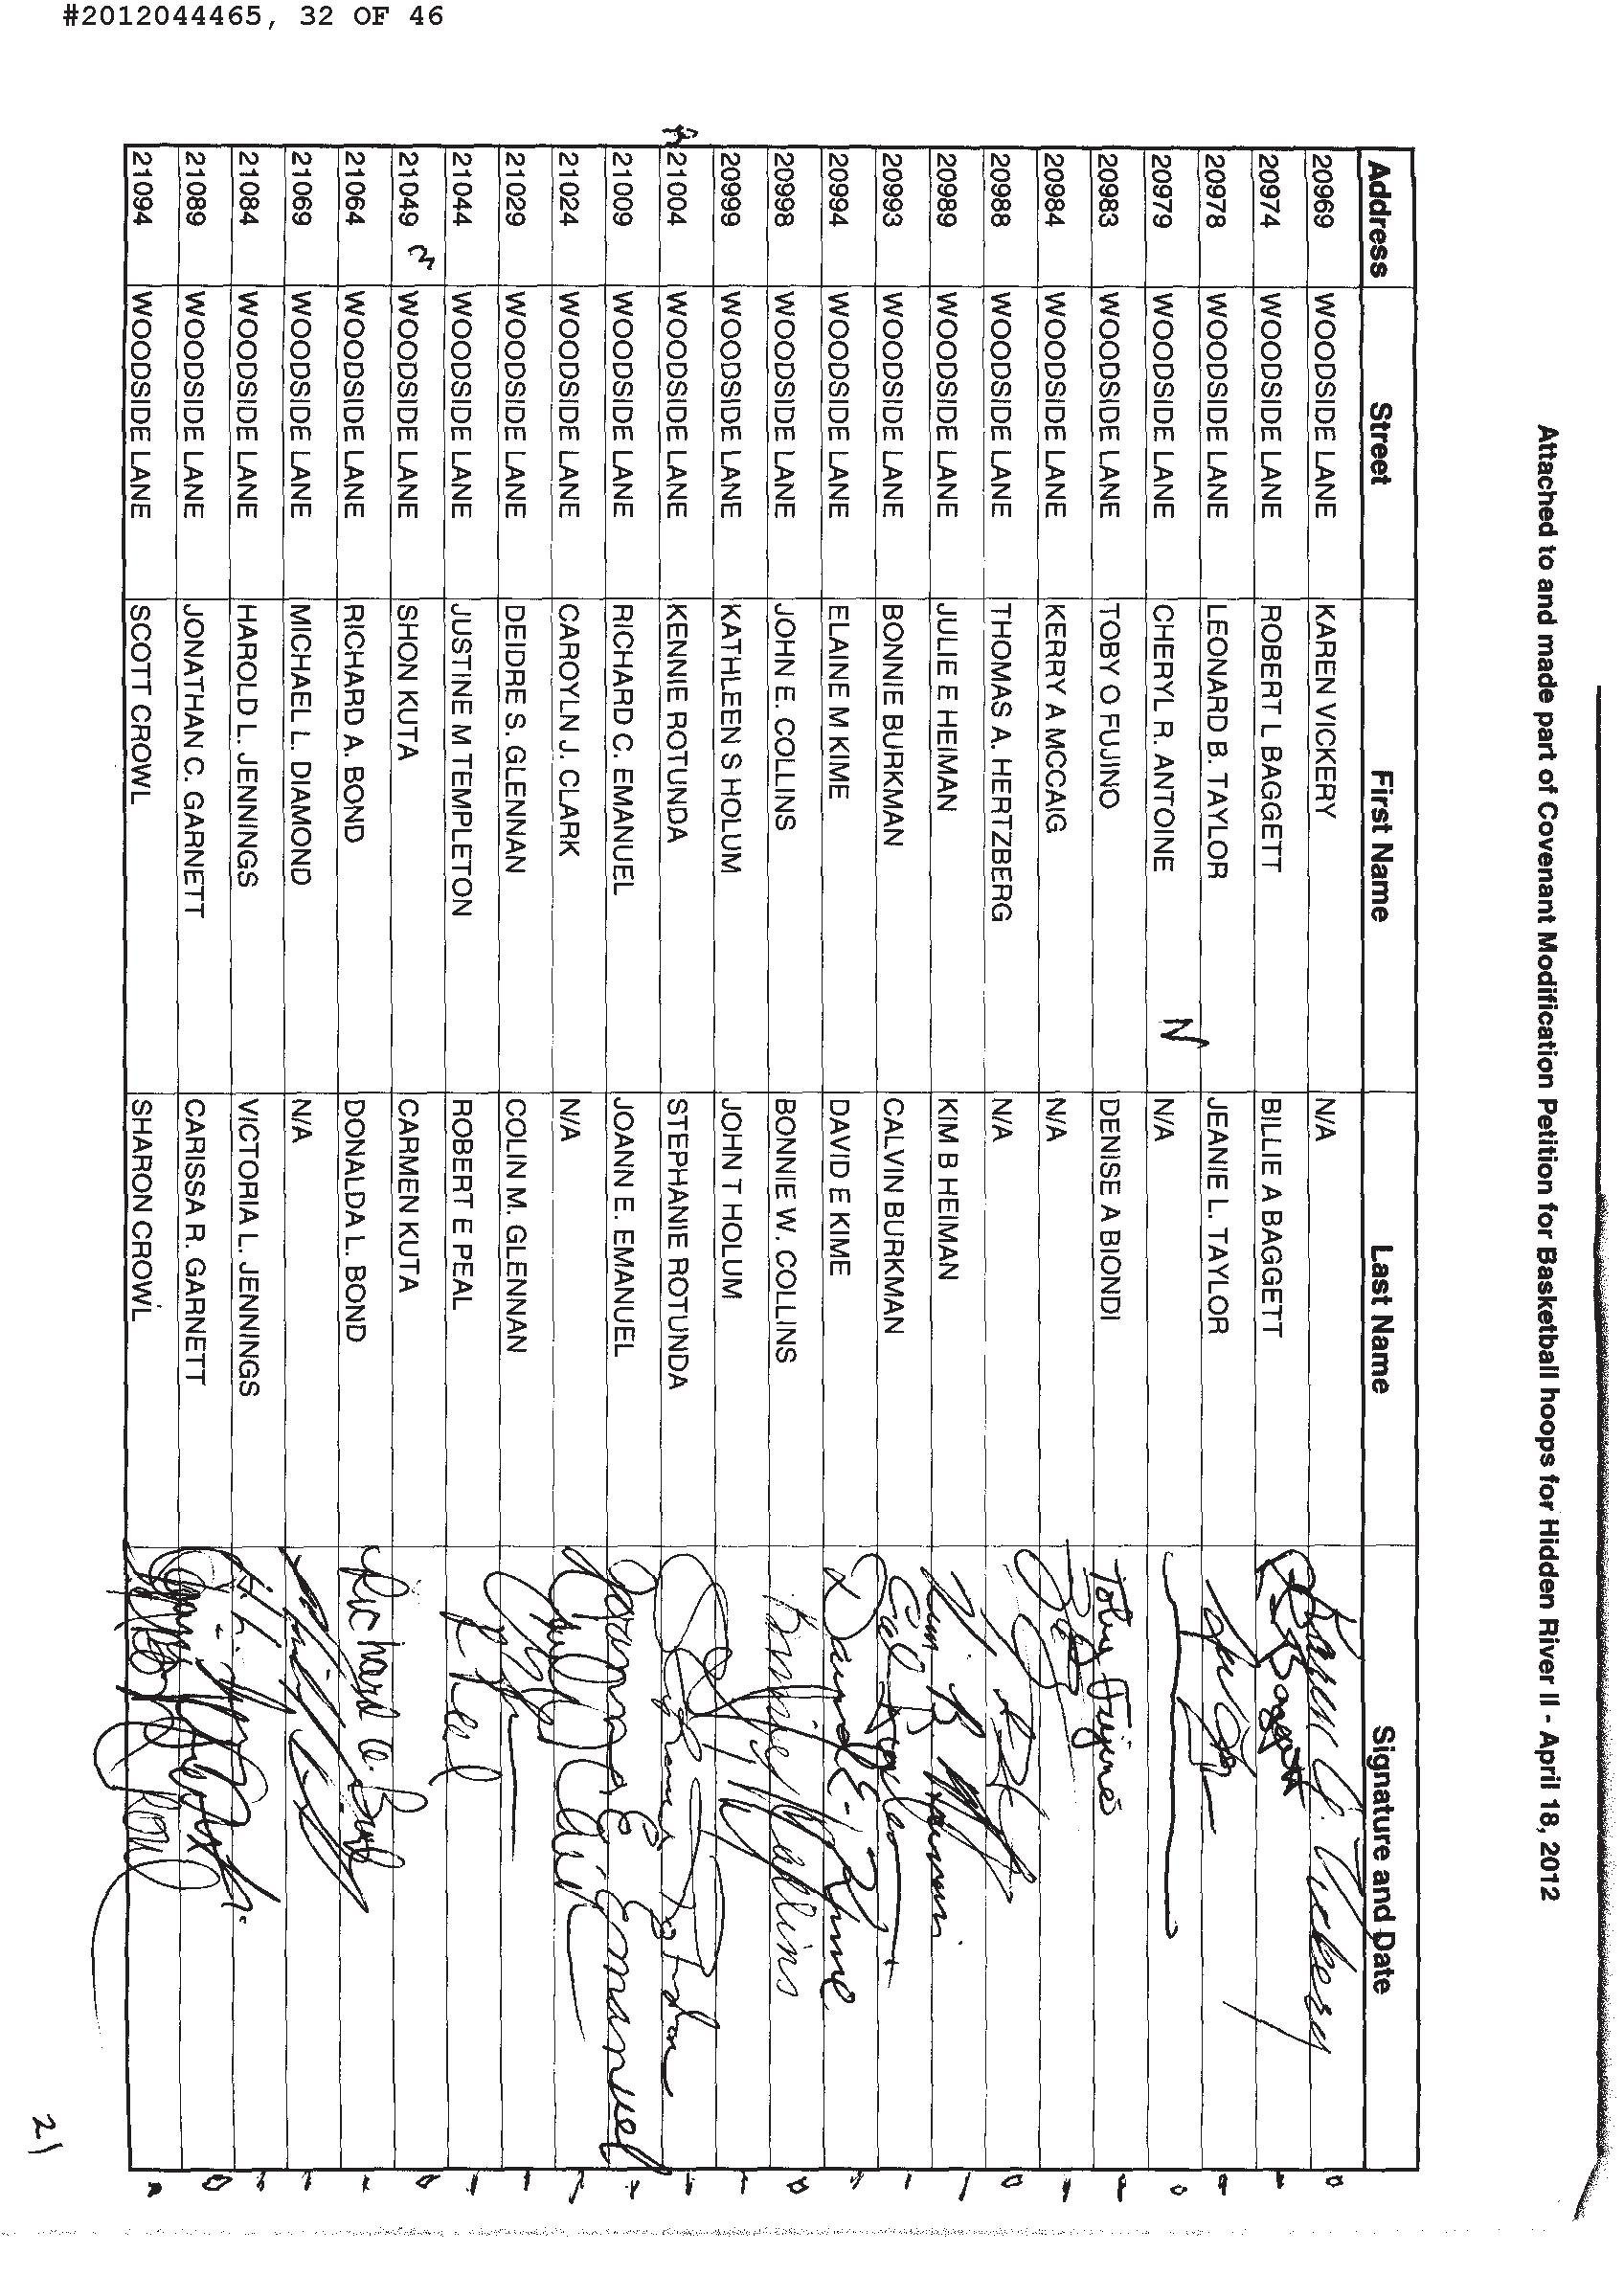 #2012044465, 32 OF 46
Attached to and made part of Covenant Modification Petition for Basketball hoops for Hidden River II - April 18, 2012
Address Street First Name Last Name Signature and Date
20969 WOODSIDE LANE KAREN VICKERY N/A
20974 WOODSIDE LANE ROBERT L BAGGETT BILLIE A BAGGETT
20978 WOODSIDE LANE LEONARD B. TAYLOR JEANIE L. TAYLOR
20979 WOODSIDE LANE CHERYL R. ANTOINE N N/A
20983 WOODSIDE LANE TOBY O FUJINO DENISE A BIONDI Toby Fujino
20984 WOODSIDE LANE KERRY A MCCAIG N/A
20988 WOODSIDE LANE THOMAS A. HERTZBERG N/A
20989 WOODSIDE LANE JULIE E HEIMAN KIM B HEIMAN
20993 WOODSIDE LANE BONNIE BURKMAN CALVIN BURKMAN
20994 WOODSIDE LANE ELAINE M KIME DAVID E KIME David E. Kime
20998 WOODSIDE LANE JOHN E. COLLINS BONNIE W. COLLINS Bonnie W Collins
20999 WOODSIDE LANE KATHLEEN S HOLUM JOHN T HOLUM
21004 WOODSIDE LANE KENNIE ROTUNDA STEPHANIE ROTUNDA
21009 WOODSIDE LANE RICHARD C. EMANUEL JOANN E. EMANUEL Joann E Emanuel
21024 WOODSIDE LANE CAROYLN J. CLARK N/A
21029 WOODSIDE LANE DEIDRE S. GLENNAN COLIN M. GLENNAN
21044 WOODSIDE LANE JUSTINE M TEMPLETON ROBERT E PEAL
21049 WOODSIDE LANE SHON KUTA CARMEN KUTA
21064 WOODSIDE LANE RICHARD A. BOND DONALDA L. BOND Richard A. Bond
21069 WOODSIDE LANE MICHAEL L. DIAMOND N/A
21084 WOODSIDE LANE HAROLD L. JENNINGS VICTORIA L. JENNINGS
21089 WOODSIDE LANE JONATHAN C. GARNETT CARISSA R. GARNETT
21094 WOODSIDE LANE SCOTT CROWL SHARON CROWL
21